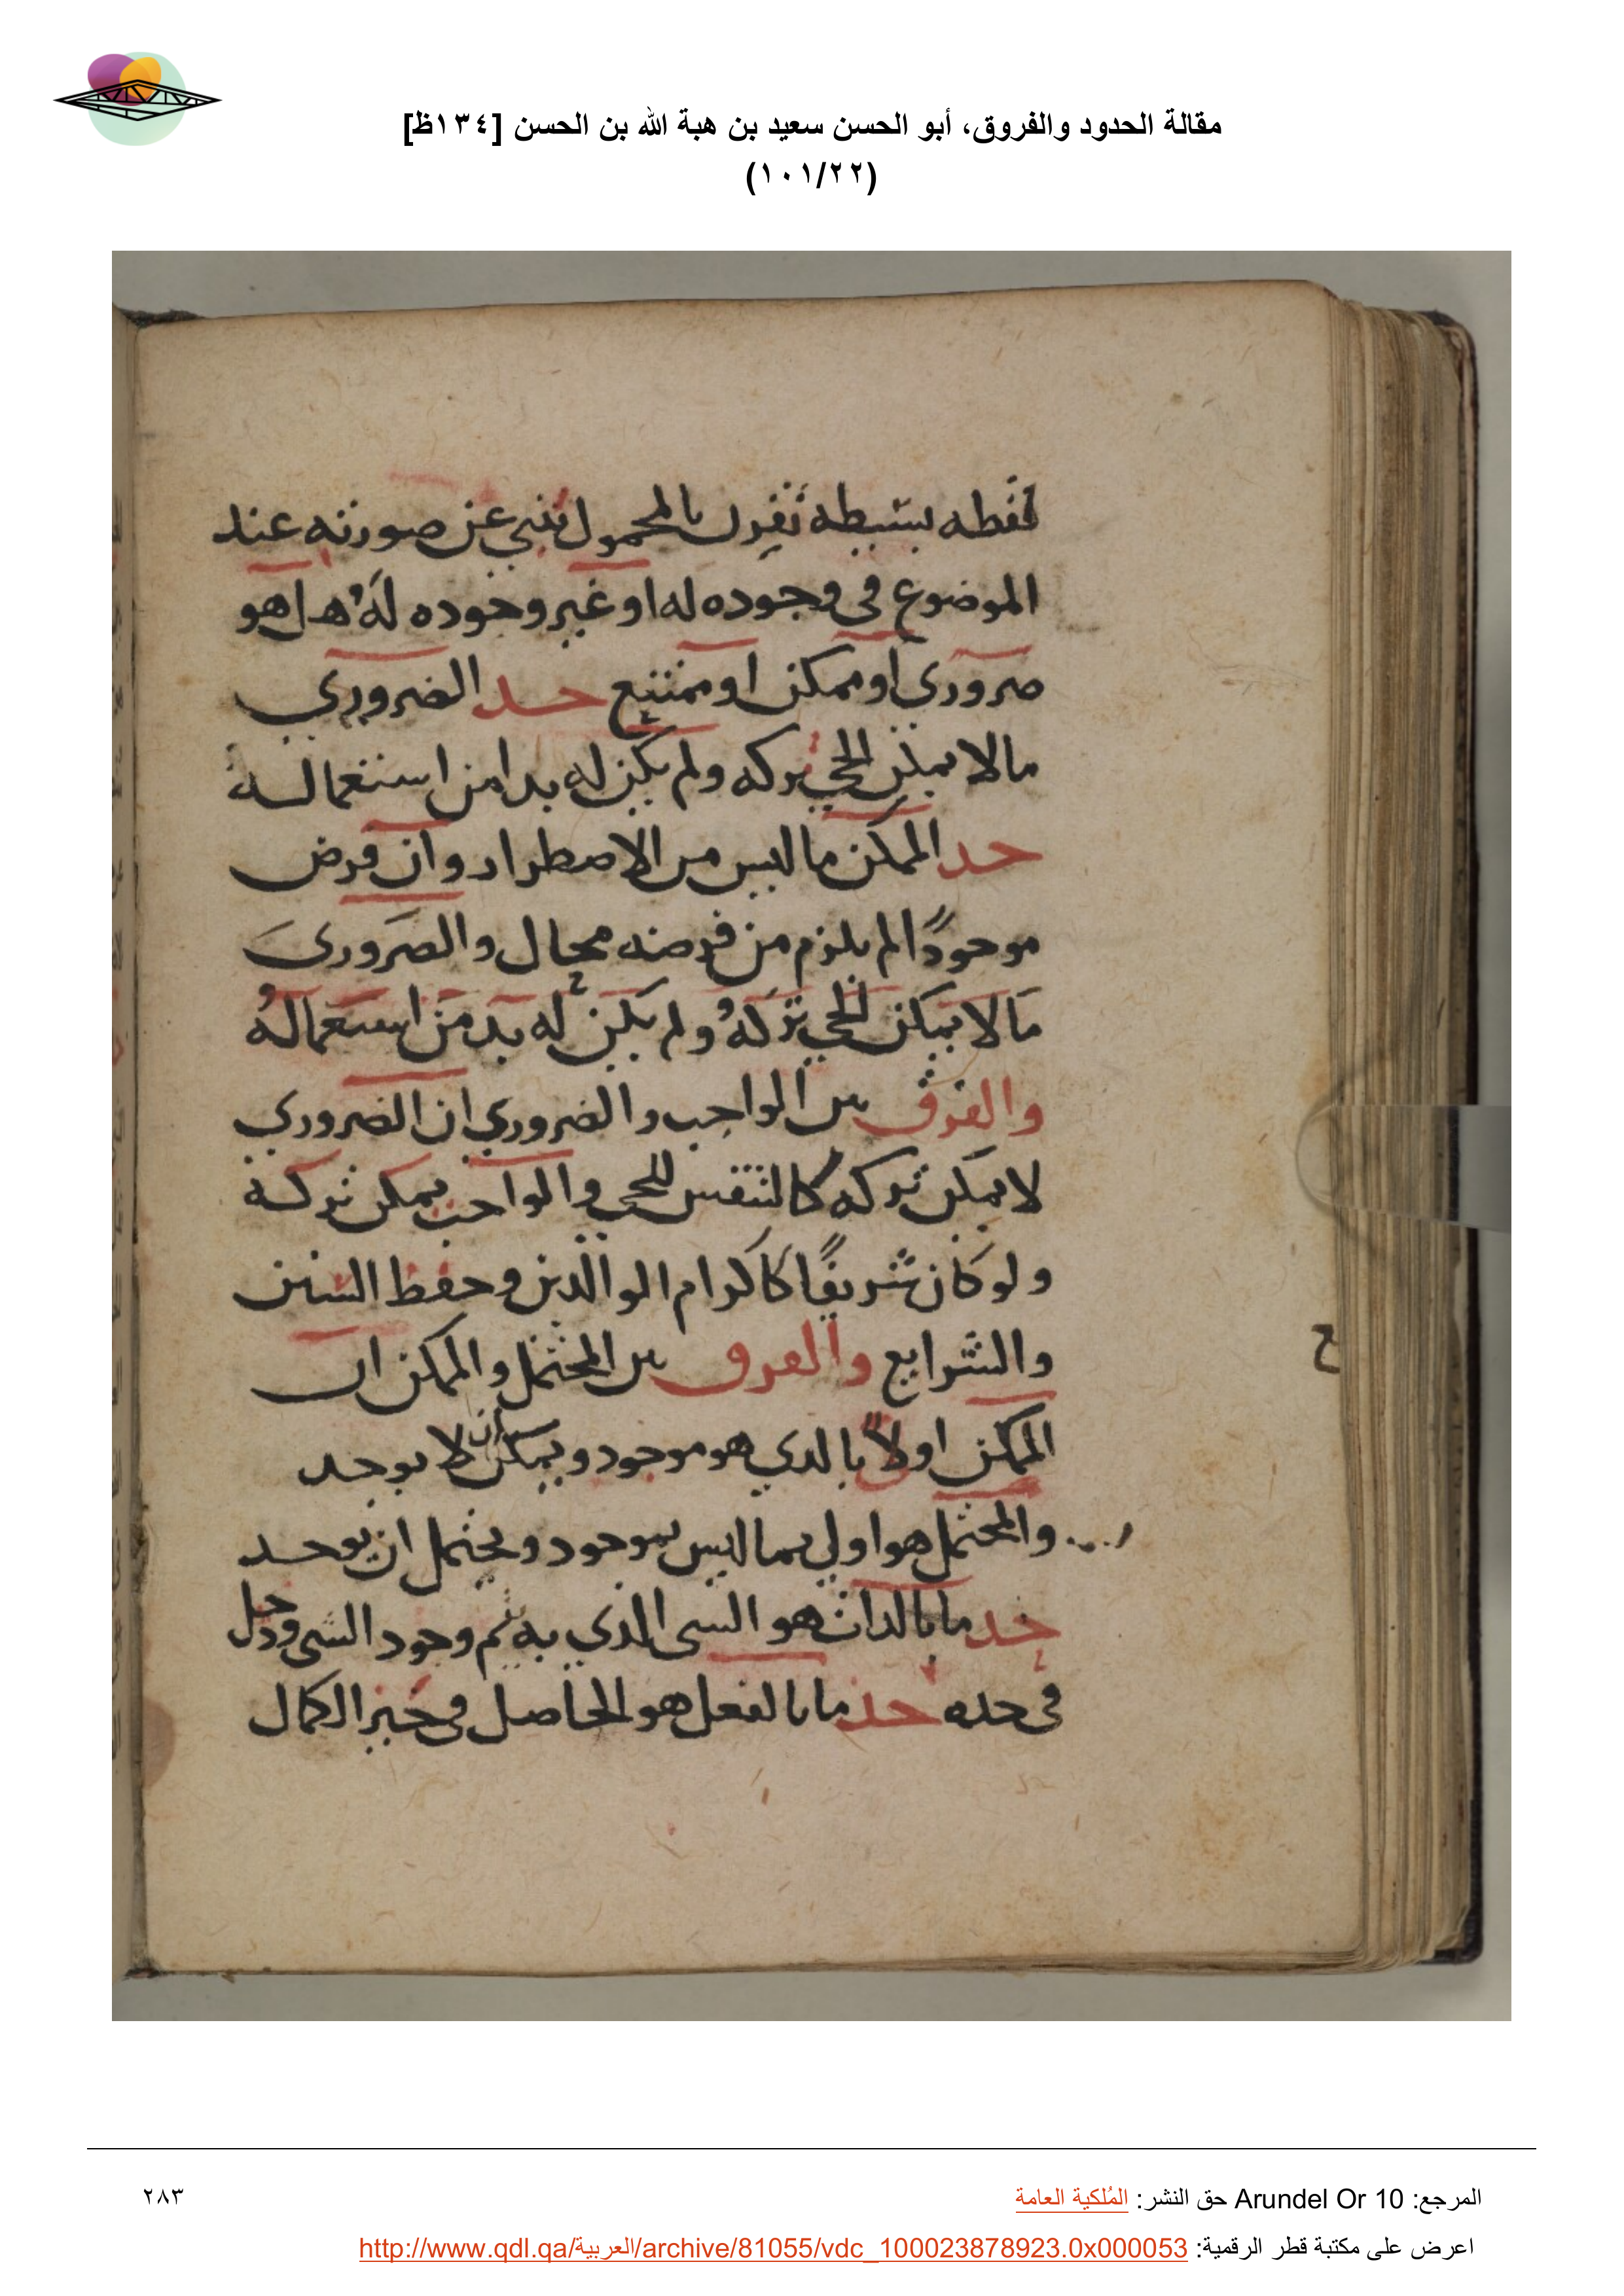 مقالة الحدود والفروق، أبو الحسن سعيد بن هبة الله بن الحسن [١٣٤ظ]
(١٠١/٢٢)
لفظه بسيطه تقرن بالمحمول تنبي عن صورته عند
الموضوع في وجوده له او غير وجوده لهُ هل هو
ضروري او ممكن او ممتنع حد الضروري
مالا يمكن الحي تركه ولم يكن له بدا من استعماله
حد الممكن ما ليس من الاضطرار وان فرض
موجودًا لم يلزم من فرضه محال والضروري
مالا يمكن الحي تركهُ ولم يكن له بد من استعمالهُ
والفرق بين الواجب والضروري ان الضروري
لا يمكن تركه كالتنفس للحي والواجب يمكن تركه
ولو كان شريفًا كاكرام الوالدين وحفظ السنن
والشرايع والفرق بين المحتمل والممكن ان
الممكن اولاً بالدي هو موجود ويمكن ان لا يوجد
والمحتمل هو اولي بما ليس بموجود ويحتمل ان يوجد
حد ما بالدات هو الشي الدي به تم وجود الشي ودخل
في حده حد ما بالفعل هو الحاصل في حيز الكمال
ح
المرجع: Arundel Or 10 حق النشر: المُلكية العامة
٢٨٣
اعرض على مكتبة قطر الرقمية: http://www.qdl.qa/العربية/archive/81055/vdc_100023878923.0x000053